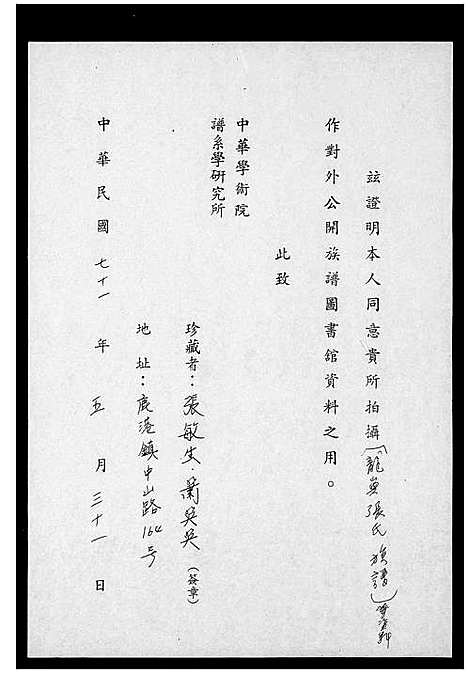 玆證明本人同意貴所拍攝(龍嵙張氏族譜)等資料
作對外公開族譜圖書舘資料之用。
此致
中華學術院
譜系學研究所
珍藏者：張敏生．蕭吳吳（簽章）
地址：鹿港鎮中山路164号
中華民國七十一年五月三十一日